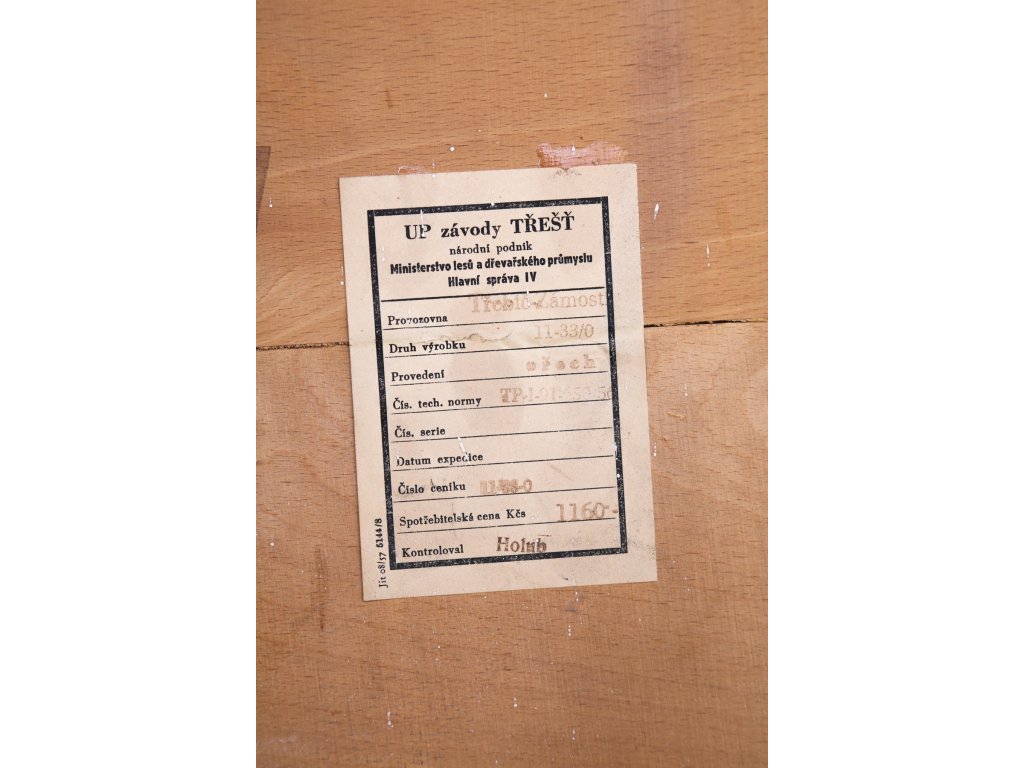 UP závody TŘEŠŤ
národní podnik
Ministerstvo lesů a dřevařského průmyslu
Hlavní správa IV
Provozovna Třebíč-Zámostí
Druh výrobku 11-33/0
Provedení ořech
Čís. tech. normy
Čís. serie
Datum expedice
Číslo ceníku
Spotřebitelská cena Kčs 1160·-
Kontroloval Holub
Jit 08/57 5144/8